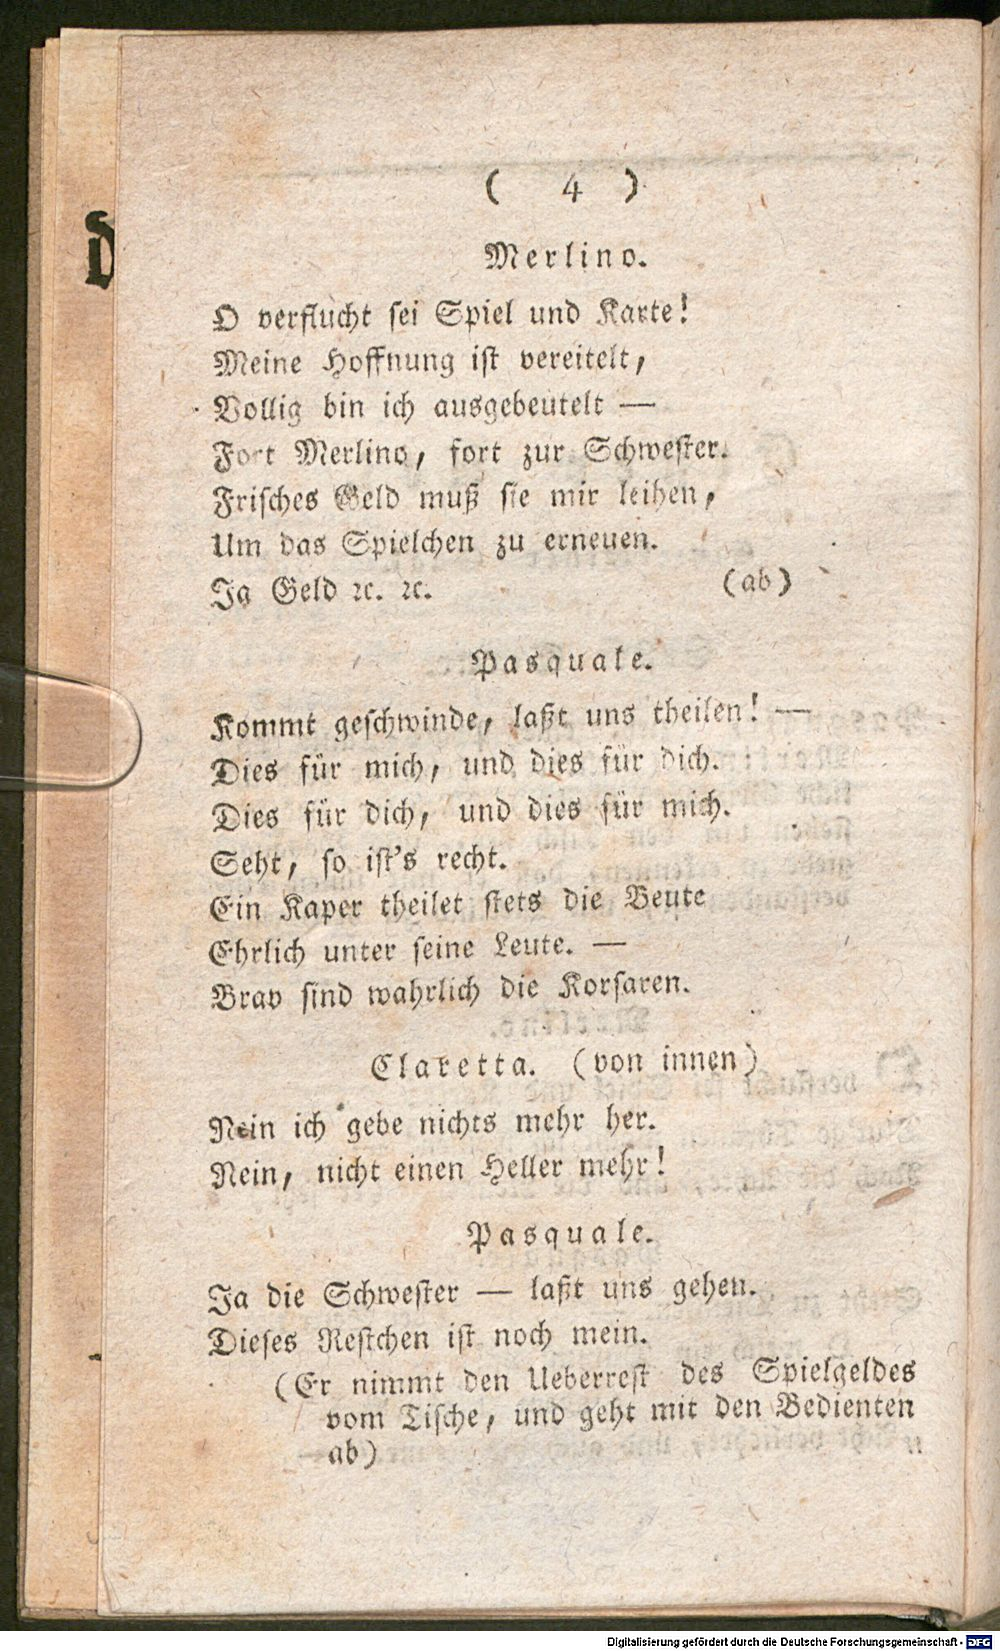 ( 4 )
Merlino.
O verflucht sei Spiel und Karte!
Meine Hoffnung ist vereitelt,
Vollig bin ich ausgebeutelt —
Fort Merlino, fort zur Schwester.
Frisches Geld muß sie mir leihen,
Um das Spielchen zu erneuen.
Ja Geld ꝛc. ꝛc. (ab)
Pasquale.
Kommt geschwinde, laßt uns theilen! —
Dies für mich, und dies für dich.
Dies für dich, und dies für mich.
Seht, so ist's recht.
Ein Kaper theilet stets die Beute
Ehrlich unter seine Leute. —
Brav sind wahrlich die Korsaren.
Claretta. (von innen)
Nein ich gebe nichts mehr her.
Nein, nicht einen Heller mehr!
Pasquale.
Ja die Schwester — laßt uns gehen.
Dieses Restchen ist noch mein.
(Er nimmt den Ueberrest des Spielgeldes
vom Tische, und geht mit den Bedienten
ab)
Digitalisierung gefördert durch die Deutsche Forschungsgemeinschaft - DFG